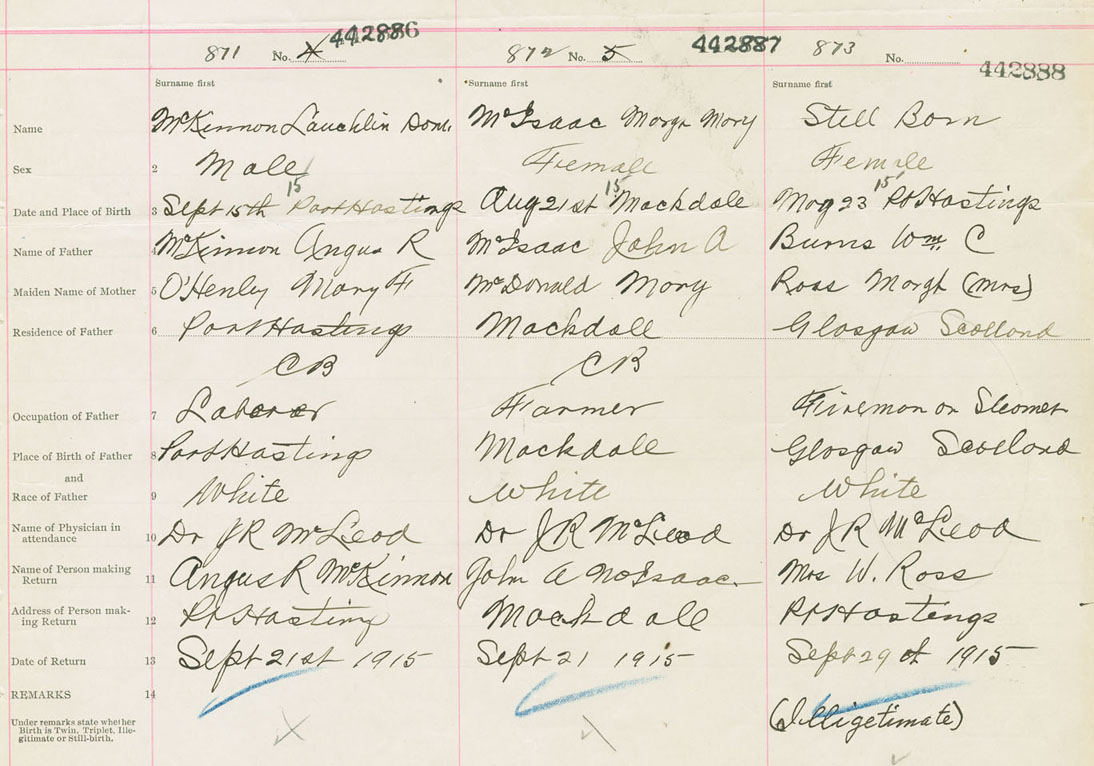 871 No. 4 442886 872 No. 5 442887 873 No. 442888
Surname first Surname first Surname first
Name McKinnon Lauchlin Donl. McIsaac Margt Mary Still Born
Sex 2 Male Female Female
15 15 15
Date and Place of Birth 3 Sept 15th Port Hastings Aug 21st Mackdale May 23 Pt Hastings
Name of Father 4 McKinnon Angus R McIsaac John A Burns Wm. C
Maiden Name of Mother 5 O'Henley Mary F McDonald Mary Ross Margt (Mrs)
Residence of Father 6 Port Hastings Mackdale Glasgow Scotland
CB CB
Occupation of Father 7 Laborer Farmer Fireman on Steamer
Place of Birth of Father 8 Port Hastings Mackdale Glasgow Scotland
and
Race of Father 9 White White White
Name of Physician in
attendance 10 Dr JR McLeod Dr JR McLeod Dr JR McLeod
Name of Person making
Return 11 Angus R McKinnon John A McIsaac Mrs W. Ross
Address of Person mak-
ing Return 12 Pt Hasting Mackdale Pt Hastings
Date of Return 13 Sept 21st 1915 Sept 21 1915 Sept 29 1915
REMARKS 14
Under remarks state whether
Birth is Twin, Triplet, Ille-
gitimate or Still-birth.
(Illigetimate)